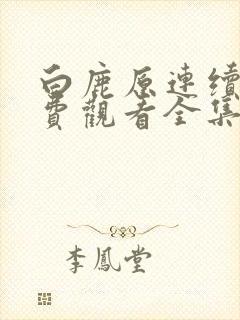 白鹿原連續
費觀看全集
李鳳堂